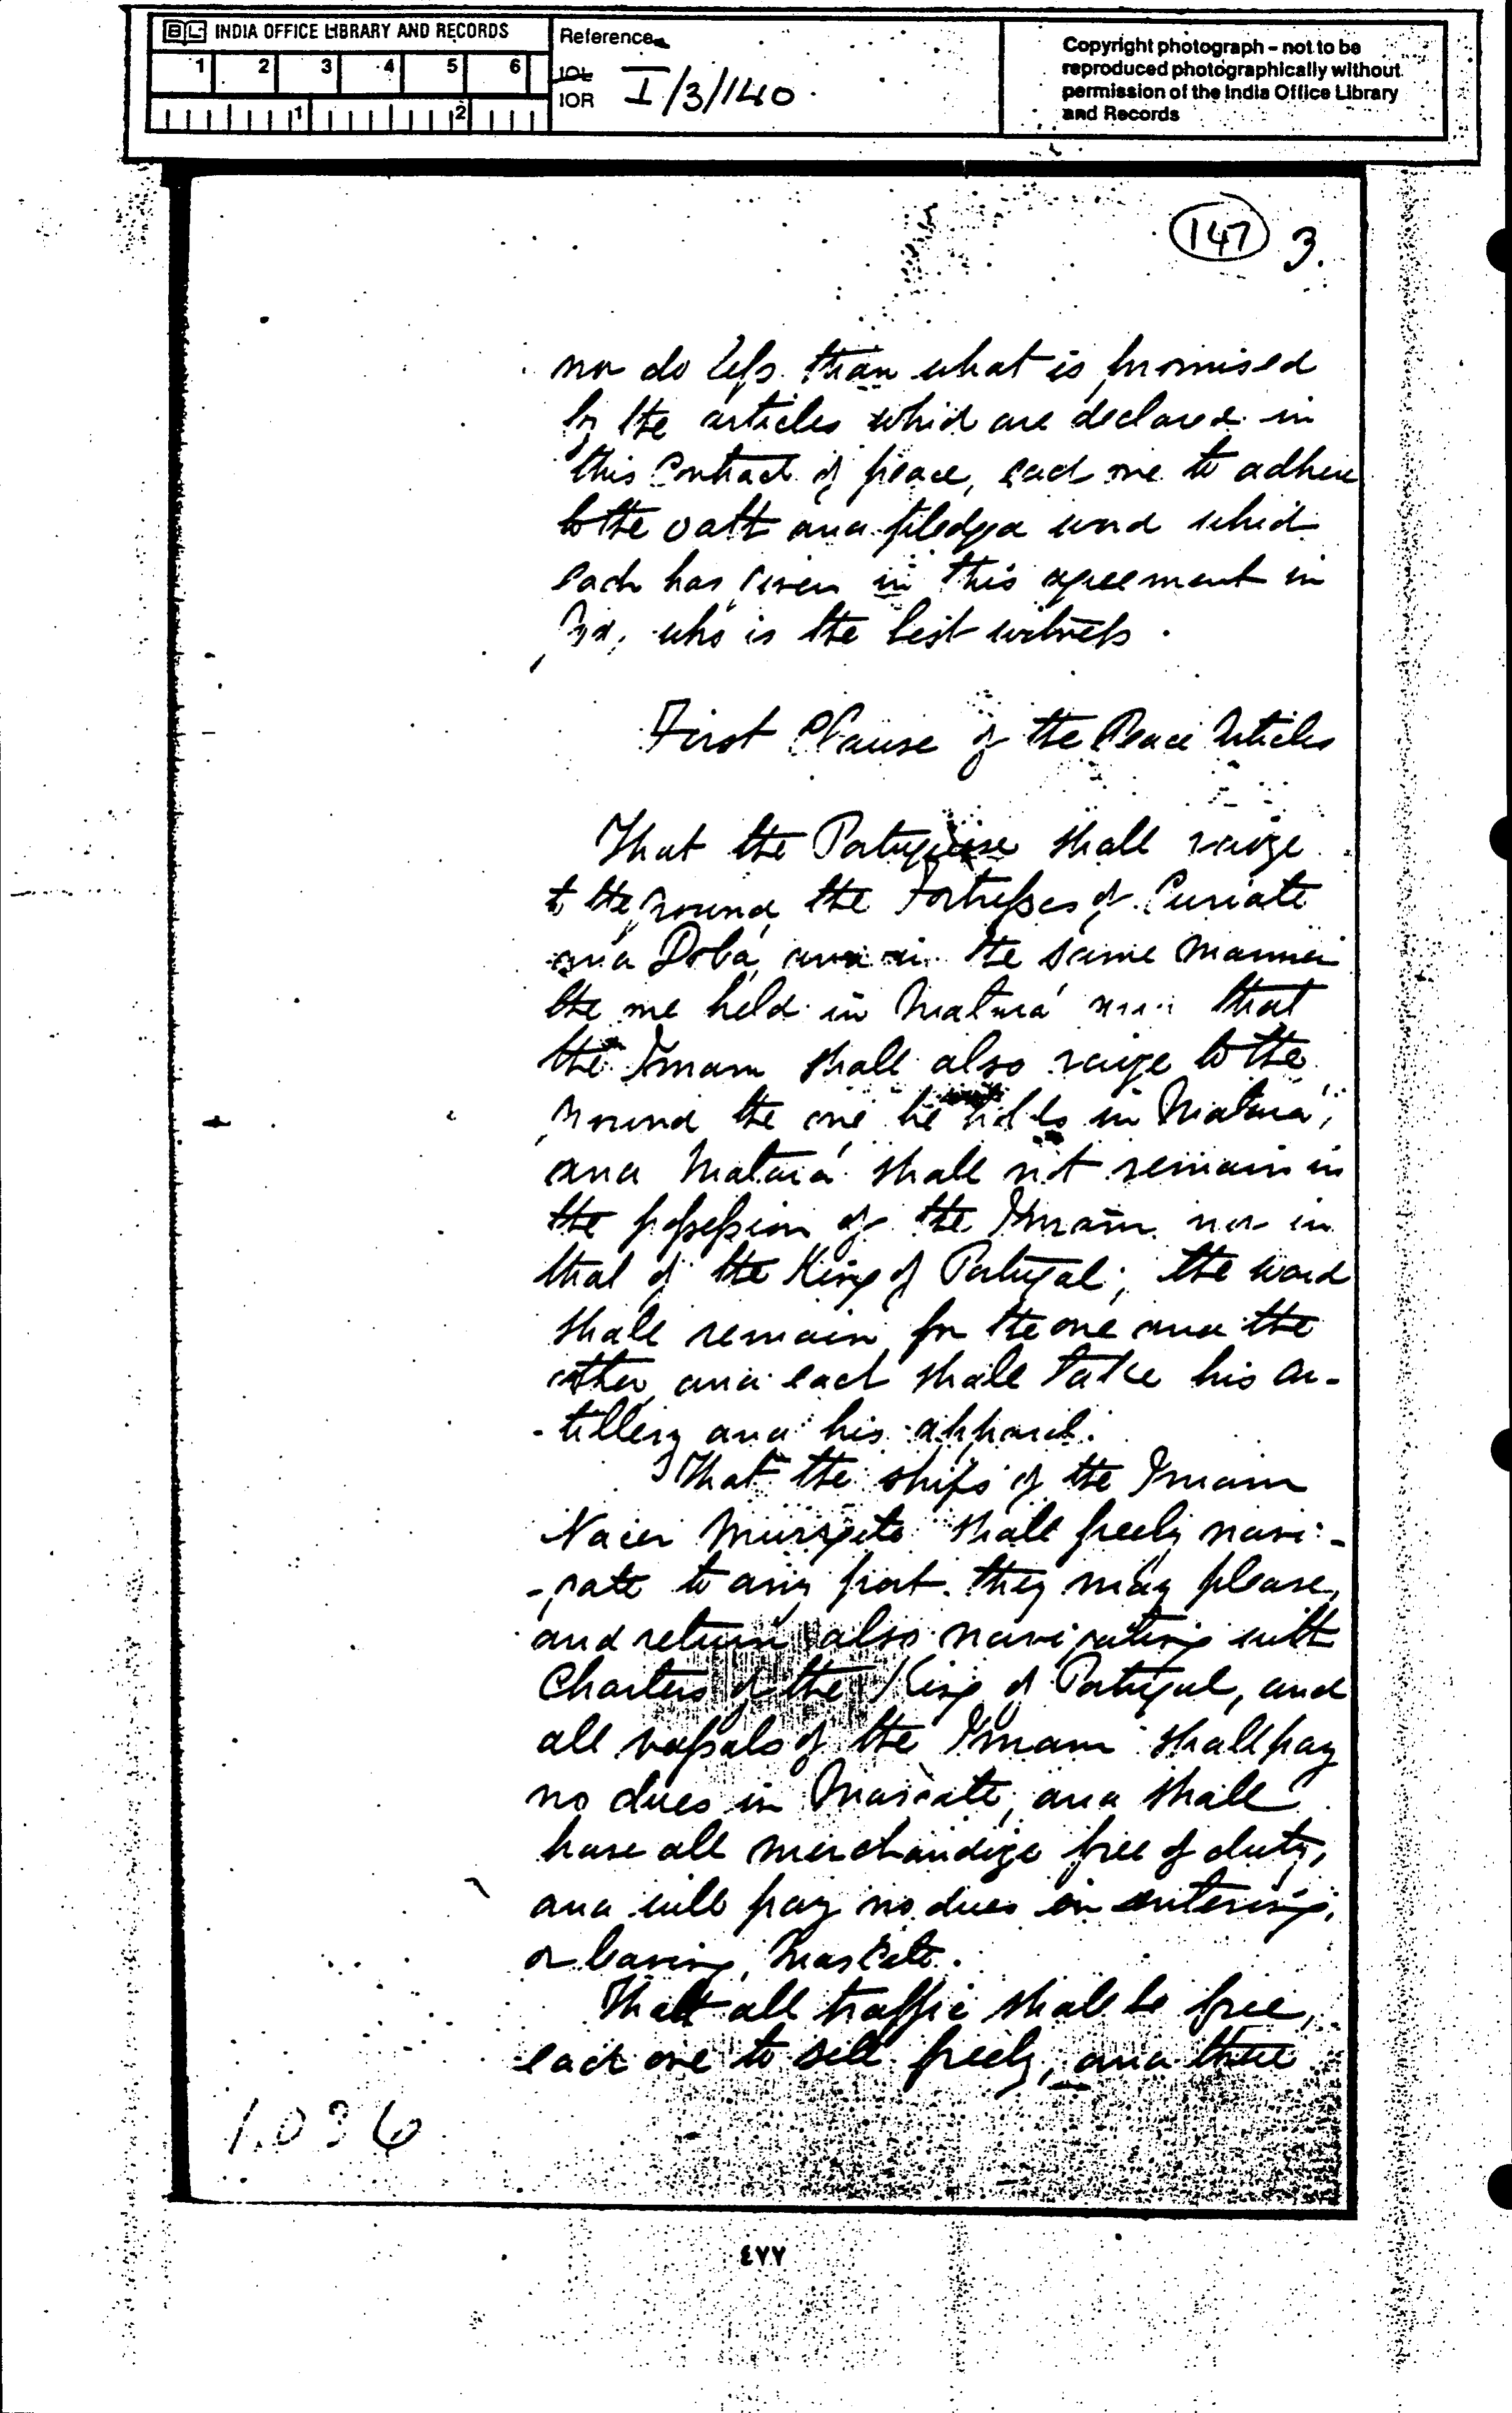 BL INDIA OFFICE LIBRARY AND RECORDS
1 2 3 4 5 6
1 2
Reference
IOL
IOR I/3/140
Copyright photograph - not to be
reproduced photographically without
permission of the India Office Library
and Records
147 3.
nor do less than what is promised
by the articles which are declared in
this Contract of peace, each one to adhere
to the oath and pledged word which
each has given in this agreement in
God, who is the best witness.
First Clause of the Peace Articles
That the Portuguese shall raize
to the ground the Fortresses of Curiate
and Doba, and in the same manner
the one held in Matará and that
the Imam shall also raize to the
ground the one he holds in Matará,
and Matará shall not remain in
the possession of the Imam nor in
that of the King of Portugal; the word
shall remain for the one and the
other and each shall take his ar-
-tillery and his apparel.
That the ships of the Imam
Nacer shall freely navi-
-gate to any port they may please,
and return also navigating with
Charters of the King of Portugal, and
all vassals of the Imam shall pay
no dues in Mascate, and shall
have all merchandize free of duty,
and will pay no dues on entering,
or leaving, Mascate.
That all traffic shall be free,
each one to sell freely, and there
1.036
٤٧٧